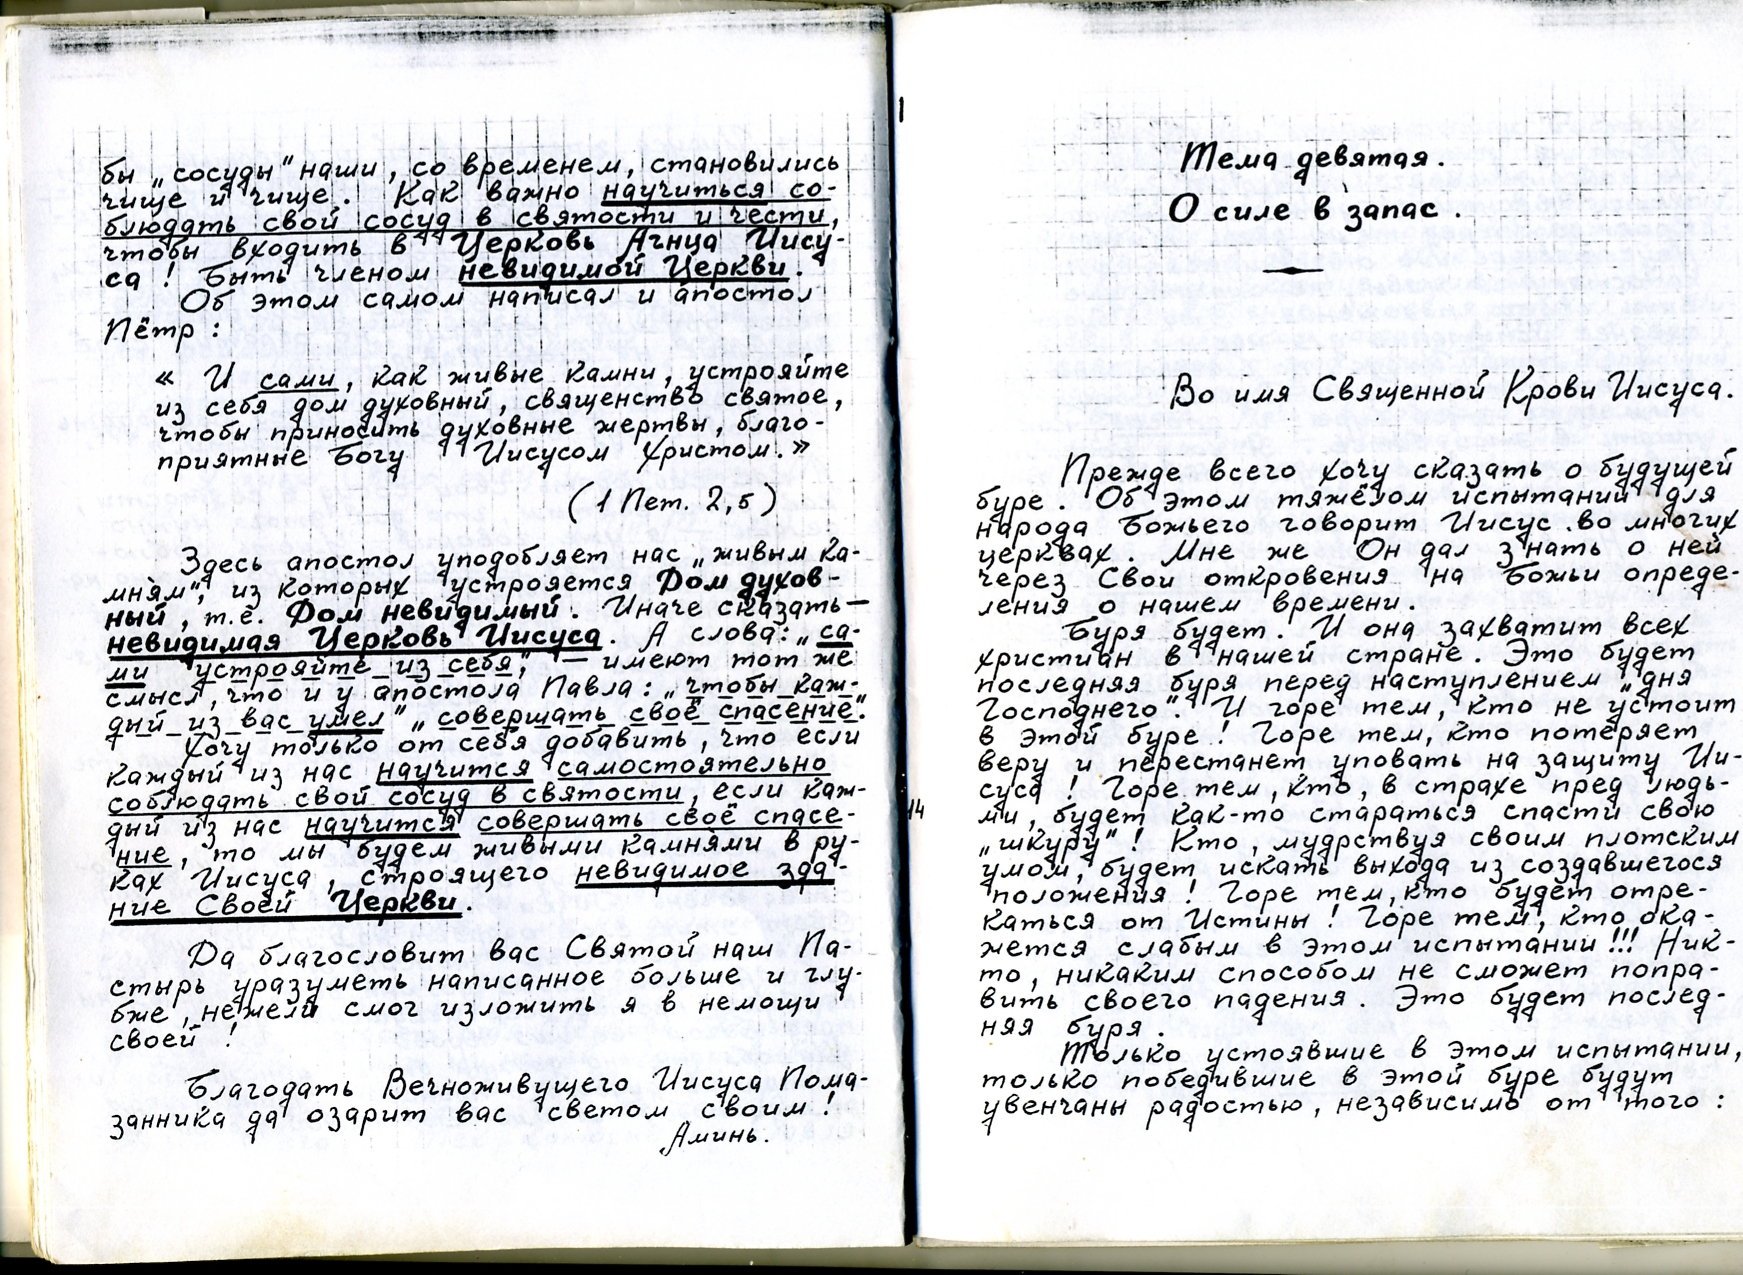 бы „сосуды" наши, со временем, становились
чище и чище. Как важно научиться со-
блюдать свой сосуд в святости и чести,
чтобы входить в Церковь Агнца Иису-
са! Быть членом невидимой Церкви.
Об этом самом написал и апостол
Пётр:
« И сами, как живые камни, устрояйте
из себя дом духовный, священство святое,
чтобы приносить духовные жертвы, благо-
приятные Богу Иисусом Христом.»
(1 Пет. 2,5)
Здесь апостол уподобляет нас „живым ка-
мням", из которых устрояется Дом духов-
ный, т.е. Дом невидимый. Иначе сказать —
невидимая Церковь Иисуса. А слова: „са-
ми устрояйте из себя", — имеют тот же
смысл, что и у апостола Павла: „чтобы каж-
дый из вас умел" „совершать своё спасение".
Хочу только от себя добавить, что если
каждый из нас научится самостоятельно
соблюдать свой сосуд в святости, если каж-
дый из нас научится совершать своё спасе-
ние, то мы будем живыми камнями в ру-
ках Иисуса, строящего невидимое зда-
ние Своей Церкви.
Да благословит вас Святой наш Па-
стырь уразуметь написанное больше и глу-
бже, нежели смог изложить я в немощи
своей!
Благодать Вечноживущего Иисуса Пома-
занника да озарит вас светом своим!
Аминь.
14
Тема девятая.
О силе в запас.
Во имя Священной Крови Иисуса.
Прежде всего хочу сказать о будущей
буре. Об этом тяжёлом испытании для
народа Божьего говорит Иисус во многих
церквах. Мне же Он дал знать о ней
через Свои откровения на Божьи опреде-
ления о нашем времени.
Буря будет. И она захватит всех
христиан в нашей стране. Это будет
последняя буря перед наступлением „дня
Господнего". И горе тем, кто не устоит
в этой буре! Горе тем, кто потеряет
веру и перестанет уповать на защиту Ии-
суса! Горе тем, кто, в страхе пред людь-
ми, будет как-то стараться спасти свою
„шкуру"! Кто, мудрствуя своим плотским
умом, будет искать выхода из создавшегося
положения! Горе тем, кто будет отре-
каться от Истины! Горе тем, кто ока-
жется слабым в этом испытании!!! Ник-
то, никаким способом не сможет попра-
вить своего падения. Это будет послед-
няя буря.
Только устоявшие в этом испытании,
только победившие в этой буре будут
увенчаны радостью, независимо от того: